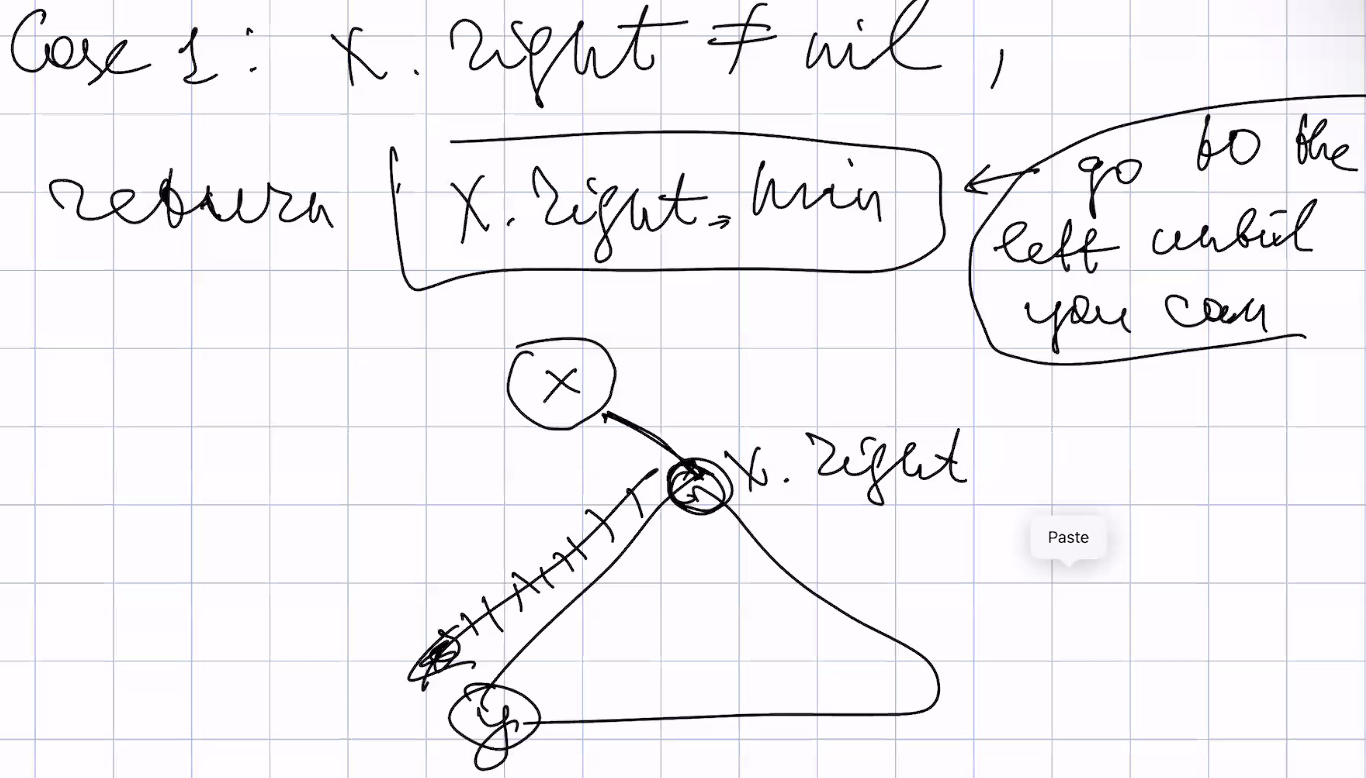 Case 1: x. right ≠ nil,
return x. right → min
go to the
left until
you can
x
x. right
Paste
y